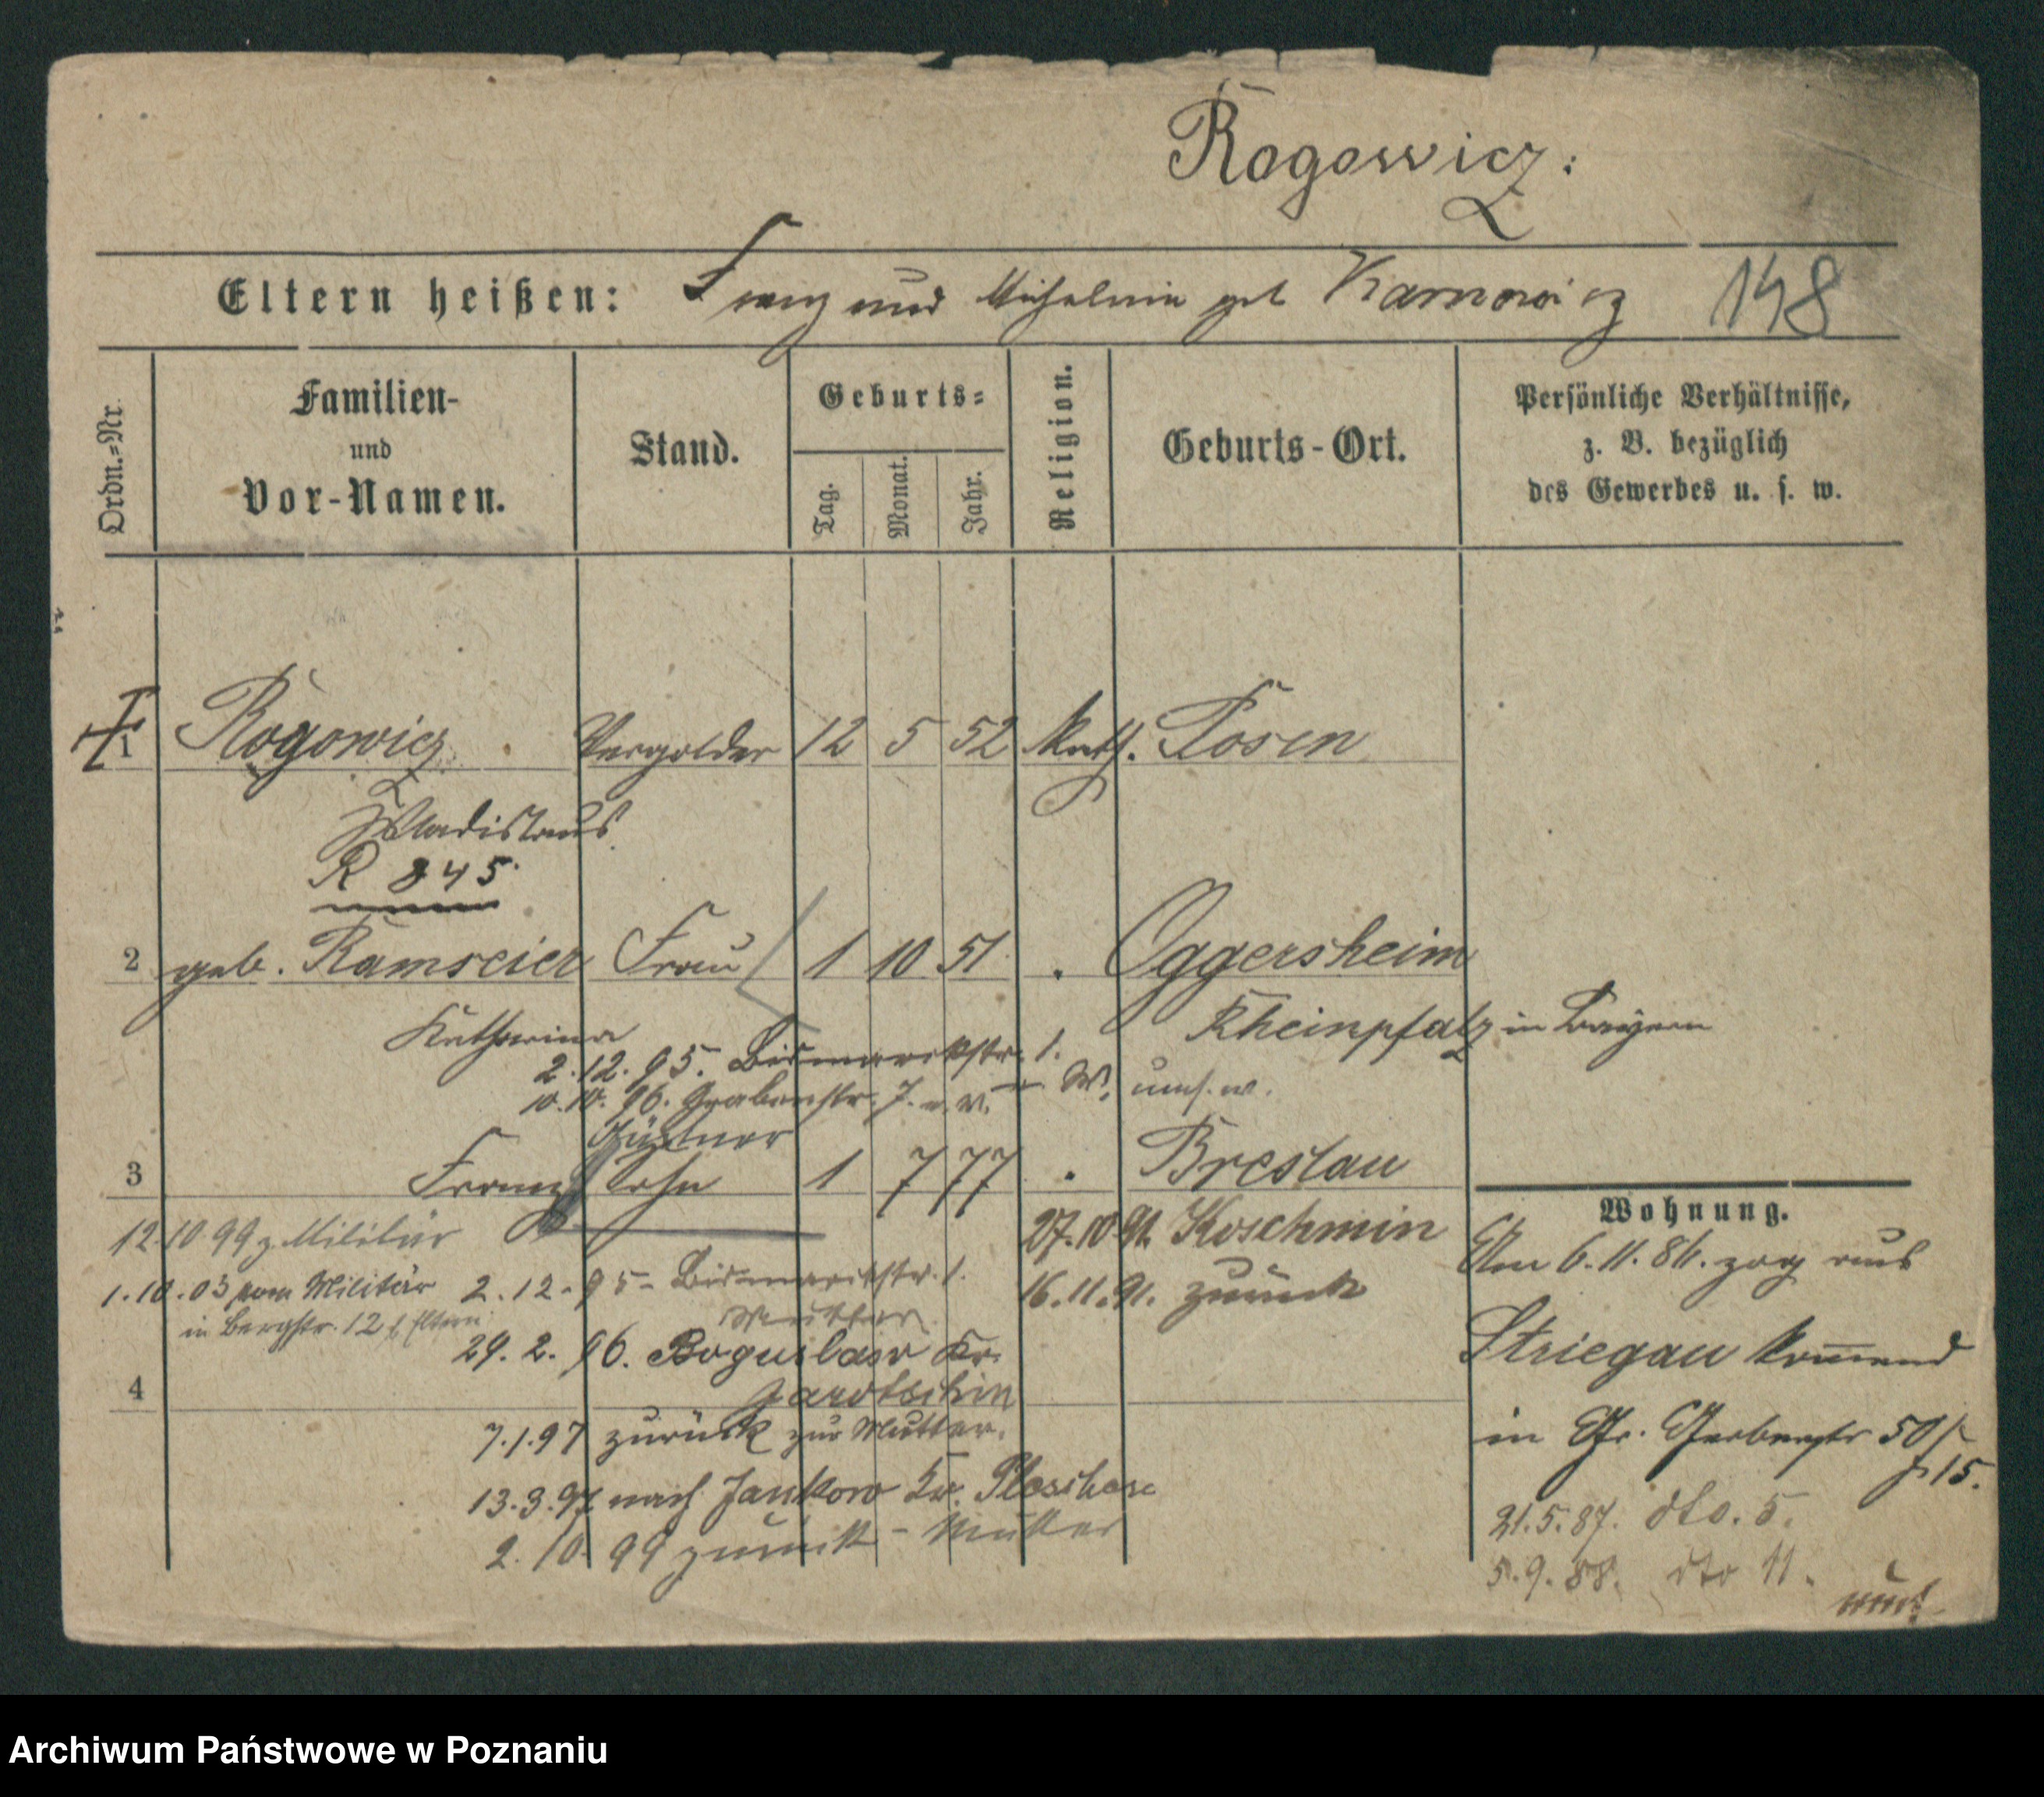 Rogowicz:
Eltern heißen: Franz und Michalina geb Karnowicz 148
Ordn.=Nr.
Familien-
und
Vor-Namen.
Stand.
Geburts=
Tag.
Monat.
Jahr.
Religion.
Geburts-Ort.
Persönliche Verhältnisse,
z. B. bezüglich
des Gewerbes u. s. w.
1 Rogowicz Vergolder 12 5 52 kath. Posen
Wladislaus
R 845
2 geb. Ramseier Frau 1 10 51 Oggersheim
Katharina
Rheinpfalz in Bayern
2.12.95. Bismarckstr. 1.
10.10.96. Grabenstr. 7.
Gärtner
3 Franz Sohn 1 7 77 Breslau
12.10 99 z. Militär
1.10.03 vom Militär
in Bergstr. 12 Eltern
27.10.91. Koschmin
16.11.91. zurück
2.12.95 - Bismarckstr. 1.
Mutter
29.2.96. Boguslaw Kr.
Jarotschin
4
7.1.97 zurück zur Mutter.
13.3.97 nach Jankow Kr. Pleschen
2.10.99 zurück - Mutter
Wohnung.
Am 6.11.86. zog aus
Striegau kommend
in Gr. Gerberstr 50/
15.
21.5.87. dto. 5.
5.9.88. dto 11.